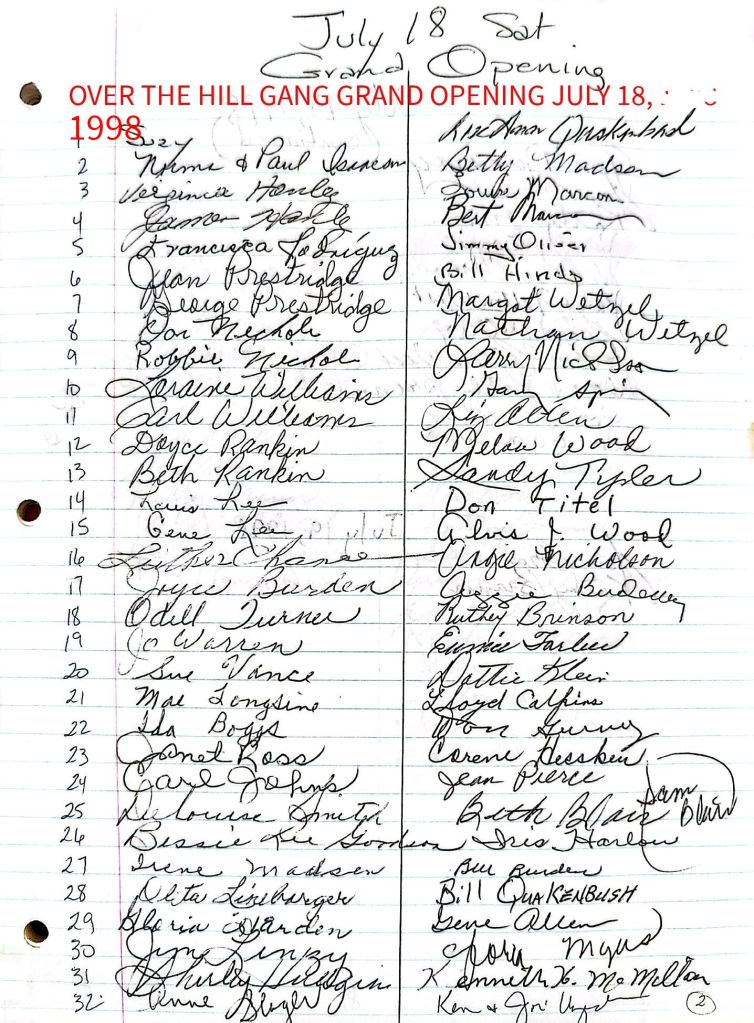 July 18 Sat
Grand Opening
OVER THE HILL GANG GRAND OPENING JULY 18,
1998
1 Suzy
2 Norma & Paul Isaacson
3 Virginia
4
5 Francisca Rodriguez
6 Jean Prestridge
7 George Prestridge
8 Don Nichols
9 Robbie Nichols
10 Loraine Williams
11 Carl Williams
12 Doyce Rankin
13 Beth Rankin
14 Louis Lee
15 Gene Lee
16 Luther Chance
17 Joyce Burden
18 Odell Turner
19 Jo Warren
20 Sue Vance
21 Mae Longsine
22 Ida Boggs
23 Janet Ross
24 Carl Johns
25 DeLouise Smith
26 Bessie Lee Goodson
27 Irene Madsen
28 Oleta Linebarger
29 Gloria Harden
30 Jym Linzy
31 Shirley Hudgins
32 Anne
Quakenbush
Betty Madsen
Louise Marcom
Bert
Jimmy Oliver
Bill Hinds
Margot Wetzel
Nathan Wetzel
Larry Nicholson
Gary
Liz Allen
Melau Wood
Sandy Tyler
Don Titel
Alvis J. Wood
Angie Nicholson
Jessie
Ruthey Brinson
Eunice
Dottie Klein
Lloyd Calfins
Don
Corene
Jean Pierce
Beth Blair
Sam
Blair
Iris Harlow
Bill Burden
Bill QUAKENBUSH
Gene Allen
Myers
Kenneth H. McMillan
Ken &
2